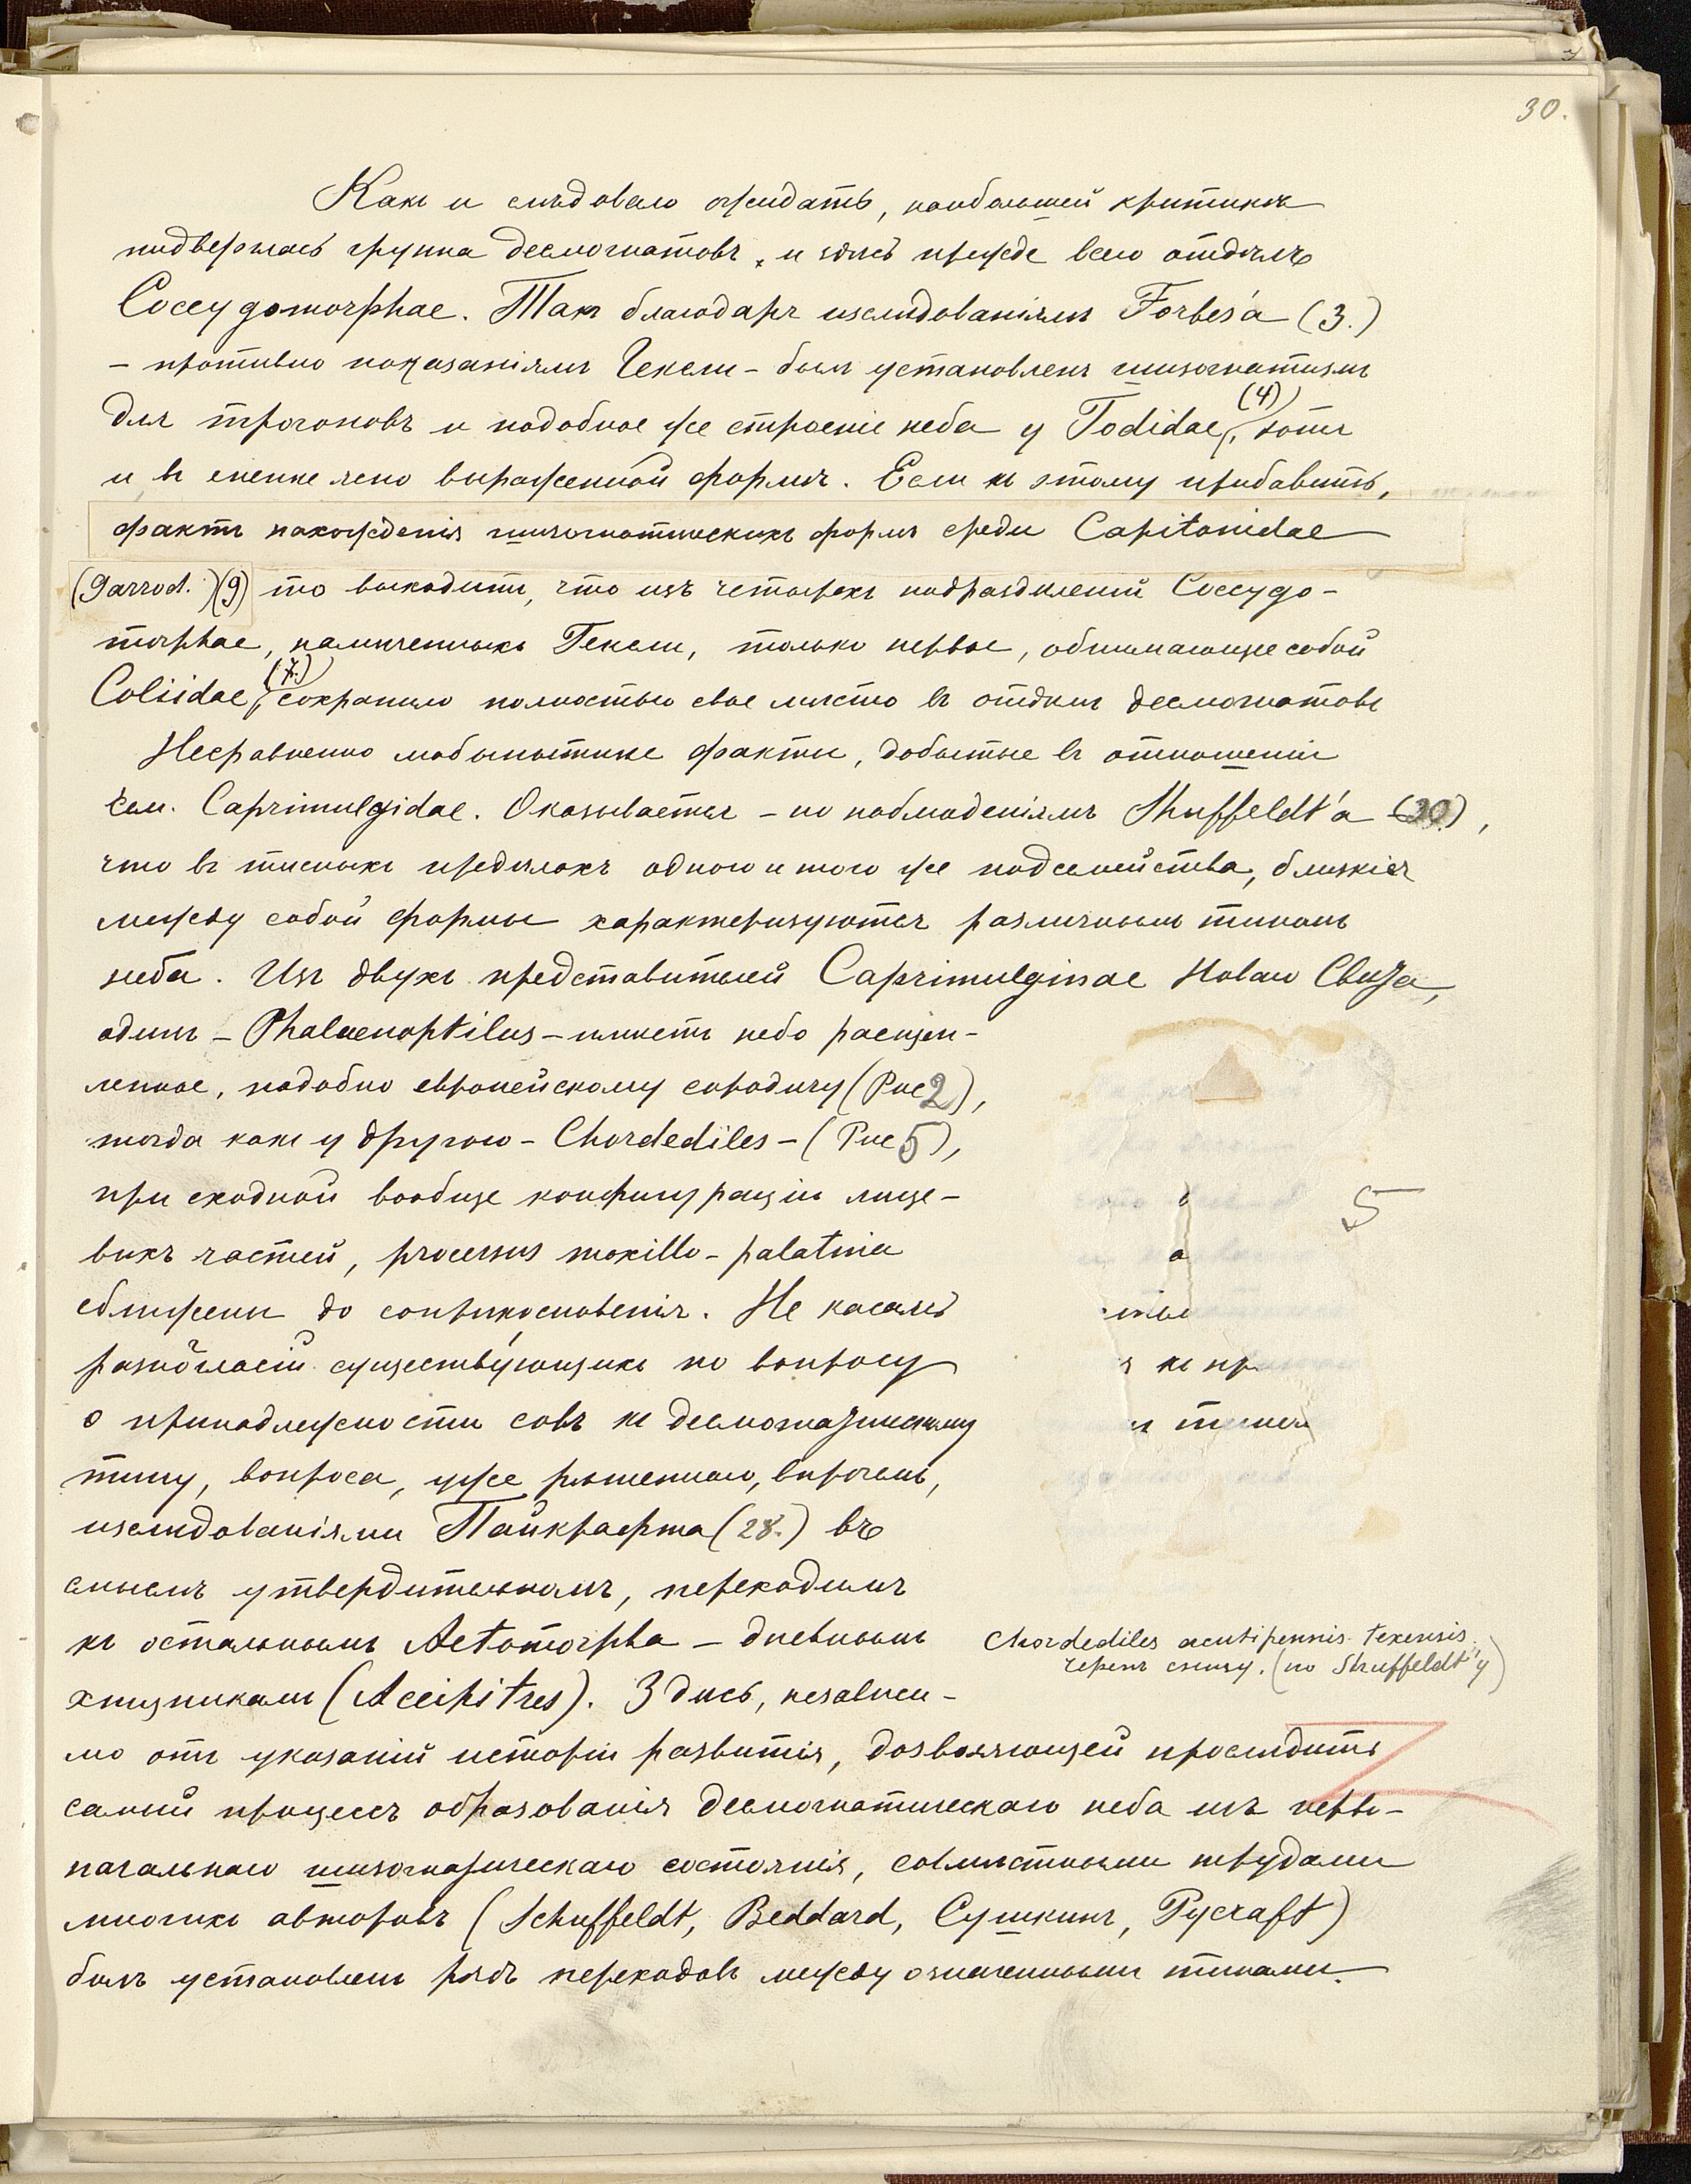 30.
Какъ и слѣдовало ожидать, наибольшей критикѣ
подверглась группа десмогнатовъ, и здѣсь прежде всего отдѣлъ
Coccygomorphae. Такъ благодаря изслѣдованіямъ Forbes'a (3.)
– противно показаніямъ Гексли – былъ установленъ шизогнатизмъ
для трогоновъ и подобное же строеніе неба у Todidae, (4) хотя
и въ менѣе ясно выраженной формѣ. Если къ этому прибавить,
фактъ нахожденія шизогнатическихъ формъ среди Capitonidae
(Garrod.) (9) то выходитъ, что изъ четырехъ подраздѣленій Coccygo-
morphae, намѣченныхъ Гексли, только первое, обнимающее собой
Coliidae, (7.) сохранило полностью свое мѣсто въ отдѣлѣ десмогнатовъ
Несравненно любопытнѣе факты, добытые въ отношеніи
сем. Caprimulgidae. Оказывается – по наблюденіямъ Shuffeldt'a (30),
что въ тѣсныхъ предѣлахъ одного и того же подсемейства, близкія
между собой формы характеризуются различнымъ типомъ
неба. Изъ двухъ представителей Caprimulginae Новаго Свѣта,
одинъ – Phalaenoptilus – имѣетъ небо расщеп-
ленное, подобно европейскому сородичу (Рис 2),
тогда какъ у другого – Chordediles – (Рис 5),
при сходной вообще конфигураціи лице-
выхъ частей, processus maxillo-palatina
сближены до соприкосновенія. Не касаясь
разногласій существующихъ по вопросу
о принадлежности совъ къ десмогнатическому
типу, вопроса, уже рѣшеннаго, впрочемъ,
изслѣдованіями Пайкрафта (28.) въ
смыслѣ утвердительномъ, переходимъ
къ остальнымъ Aetomorpha – дневнымъ
хищникамъ (Accipitres). Здѣсь, независи-
мо отъ указаній исторіи развитія, дозволяющей прослѣдить
самый процессъ образованія десмогнатическаго неба изъ перво-
начальнаго шизогнатическаго состоянія, совмѣстными трудами
многихъ авторовъ (Schuffeldt, Beddard, Сушкинъ, Pycraft)
былъ установленъ рядъ переходовъ между означенными типами.
5
а
къ пр
Chordediles acutipennis texensis.
черепъ снизу. (по Shuffeldt'у)